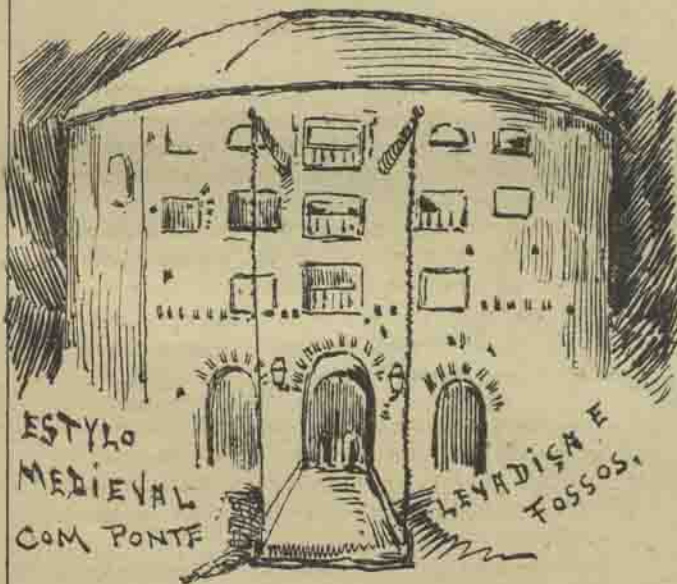 ESTYLO
MEDIEVAL
COM PONTE
LEVADIÇA E
FOSSOS.